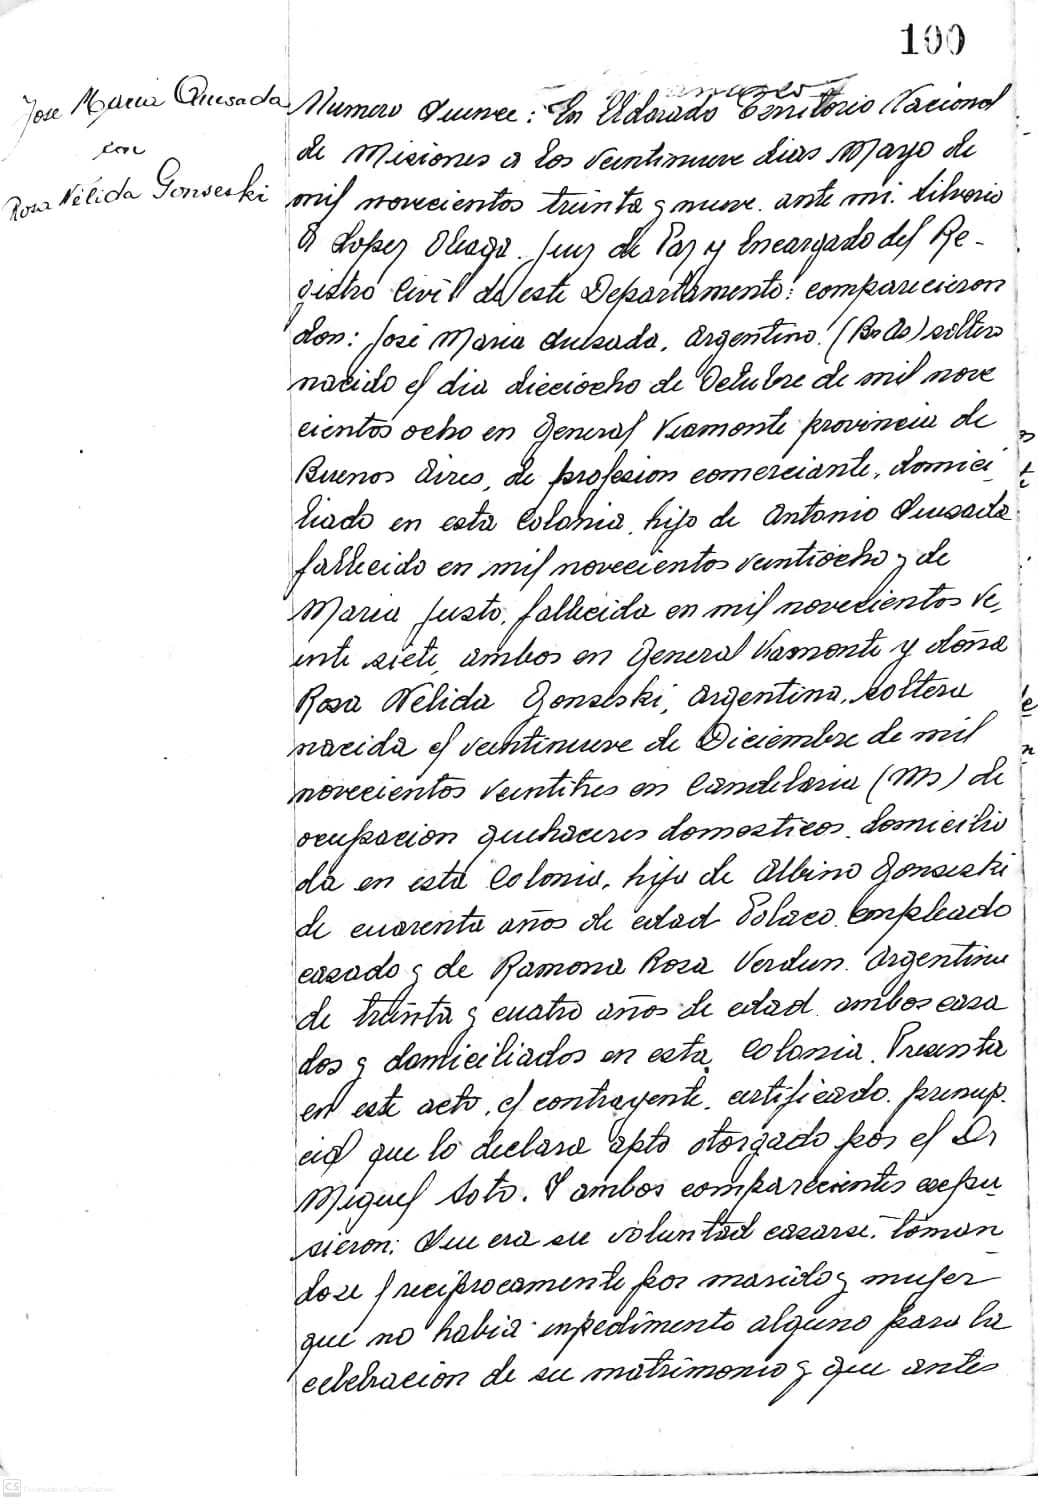 100
Jose Maria Quesada
con
Rosa Nélida Gonseski
Numero Quince: En Eldorado Territorio Nacional
de Misiones a los veintinueve dias Mayo de
mil novecientos treinta y nueve. ante mi. Liborio
Lopez Oleaga. Juez de Paz y Encargado del Re-
gistro Civil de este Departamento: comparecieron
don: José Maria Quesada, Argentino. (Bs As) soltero
nacido el dia dieciocho de Octubre de mil nove
cientos ocho en General Viamonte provincia de
Buenos Aires, de profesion comerciante, domici
liado en esta Colonia, hijo de Antonio Quesada
fallecido en mil novecientos veintiocho y de
Maria Justo, fallecida en mil novecientos ve,
inte siete, ambos en General Viamonte y doña
Rosa Nélida Gonseski, argentina, soltera
nacida el veintinueve de Diciembre de mil
novecientos veintitres en Candelaria (Ms) de
ocupacion quehaceres domesticos. domicilia
da en esta Colonia, hija de Albino Gonseski
de cuarenta años de edad Polaco. empleado
casado y de Ramona Rosa Verdun. Argentina
de treinta y cuatro años de edad. ambos casa
dos y domiciliados en esta Colonia. Presenta
en este acto, el contrayente. certificado. prenup.
cial que lo declara apto otorgado por el Dr
Miguel Soto. Y ambos comparecientes expu
sieron; Que era su voluntad casarse, toman
dose reciprocamente por marido y mujer
que no habia impedimento alguno para la
celebracion de su matrimonio y que antes
CS Escaneado con CamScanner